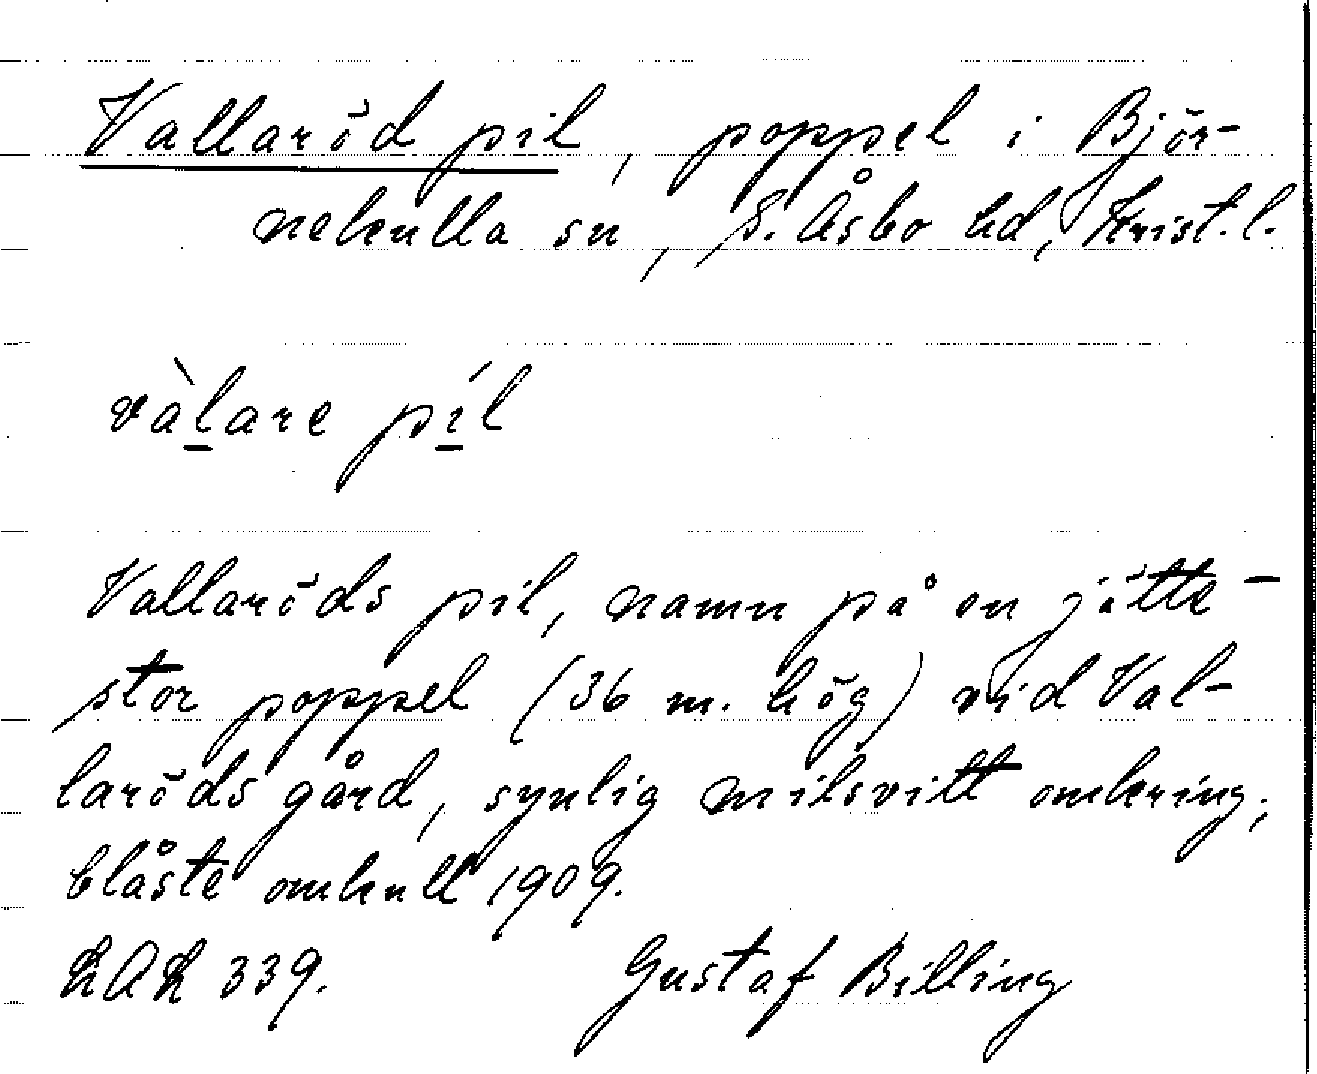 Vallaröd pil, poppel i Björ-
nekulla sn, S. Åsbo hd, Krist.l.
vàlare píl
Vallaröds pil, namn på en jätte-
stor poppel (36 m. hög) vid Val-
laröds gård, synlig milsvitt omkring;
blåste omkull 1909.
LAL 339. Gustaf Billing